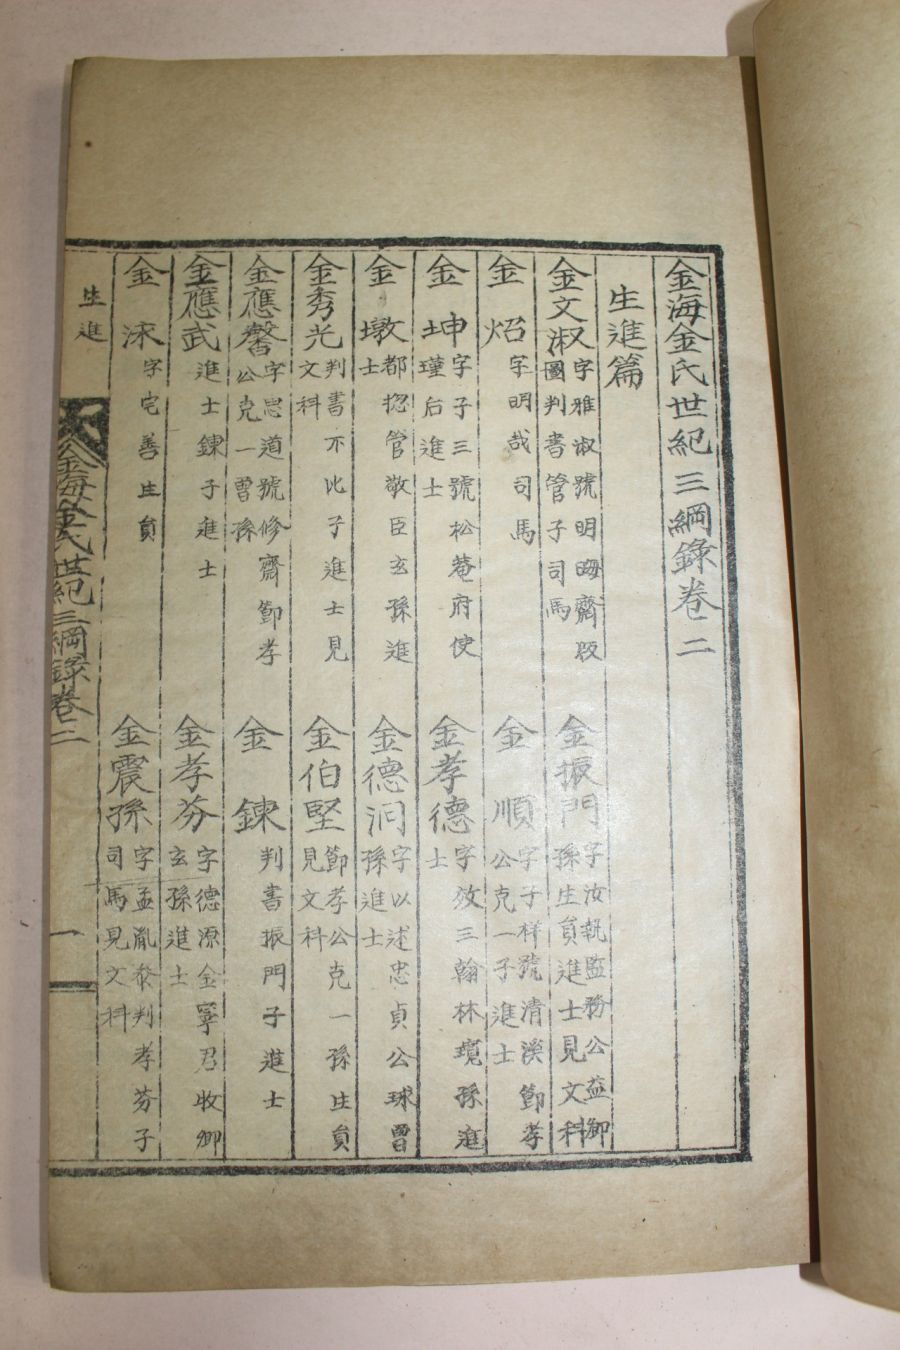 金海金氏世紀三綱錄卷二
生進篇
金文淑 字雅淑號明晦齋版圖判書管子司馬
金振門 字汝執監務公益卿孫生員進士見文科
金炤 字明哉司馬
金順 字子祥號清溪節孝公克一子進士
金坤 字子三號松菴府使瑾后進士
金孝德 字效三翰林璄孫進士
金墩 都摠管敬臣玄孫進士
金德泂 字以述忠貞公球曾孫進士
金秀光 判書不比子進士見文科
金伯堅 節孝公克一孫生員見文科
金應馨 字忠道號修齋節孝公克一曾孫
金鍊 判書振門子進士
金應武 進士鍊子進士
金孝芬 字德源金寧君牧卿玄孫進士
金洣 字宅善生員
金震孫 字孟胤參判孝芬子司馬見文科
生進
金海金氏世紀三綱錄卷二
一